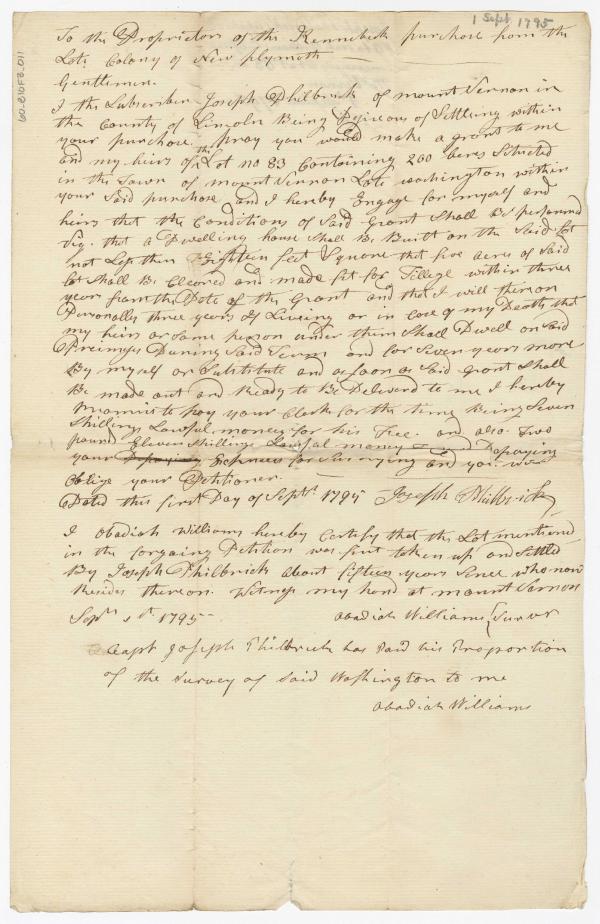 1 Sept 1795
60-810F8_011
To the Proprietors of the Kennebeck purchase from the
Late Colony of New Plymoth
Gentlemen.
I the Subscriber Joseph Philbrick of mount Vernon in
the County of Lincoln Being Desireous of Settling within
your purchase. pray you would make a grant to me
and my heirs of the Lot no 83 Containing 200 acres Situated
in the Town of mount Vernon Late washington within
your Said purchase and I hereby Engage for myself and
heirs that the Conditions of Said Grant Shall Be performed
Viz. that a Dwelling house Shall Be Built on the Said Lot
not Less then Eighteen feet Square that five acres of Said
Lot Shall Be Cleared and made fit for Tillege within three
years from the Date of the Grant and that I will thereon
Personally three years If Liveing or in case of my Death that
my heirs or Some person under them Shall Dwell on Said
Premises Dureing Said Term and for Seven years more
By myself or Substitute and as soon as Said Grant Shall
Be made out and Ready to Be Deliverd to me I hereby
Promis to pay your Clerk for the time Being Seven
Shillings Lawful money for his Fee. and also Two
pound Eleven Shillings Lawful money
your for Surveying and you
oblige your Petitioner.
Dated this first Day of Septr 1795 Joseph Philbrick
I obadiah Williams hereby Certify that the Lot mentiined
in the forgaing Petition was first taken up and Settled
By Joseph Philbrick about fifteen years Sence who now
Resides thereon. Witness my hand at mount Varnon
Sepr 1st 1795 obadiah Williams Survr
Capt Joseph Philbrick has Paid his Proportion
of the Survey of said Washington to me
obadiah Williams